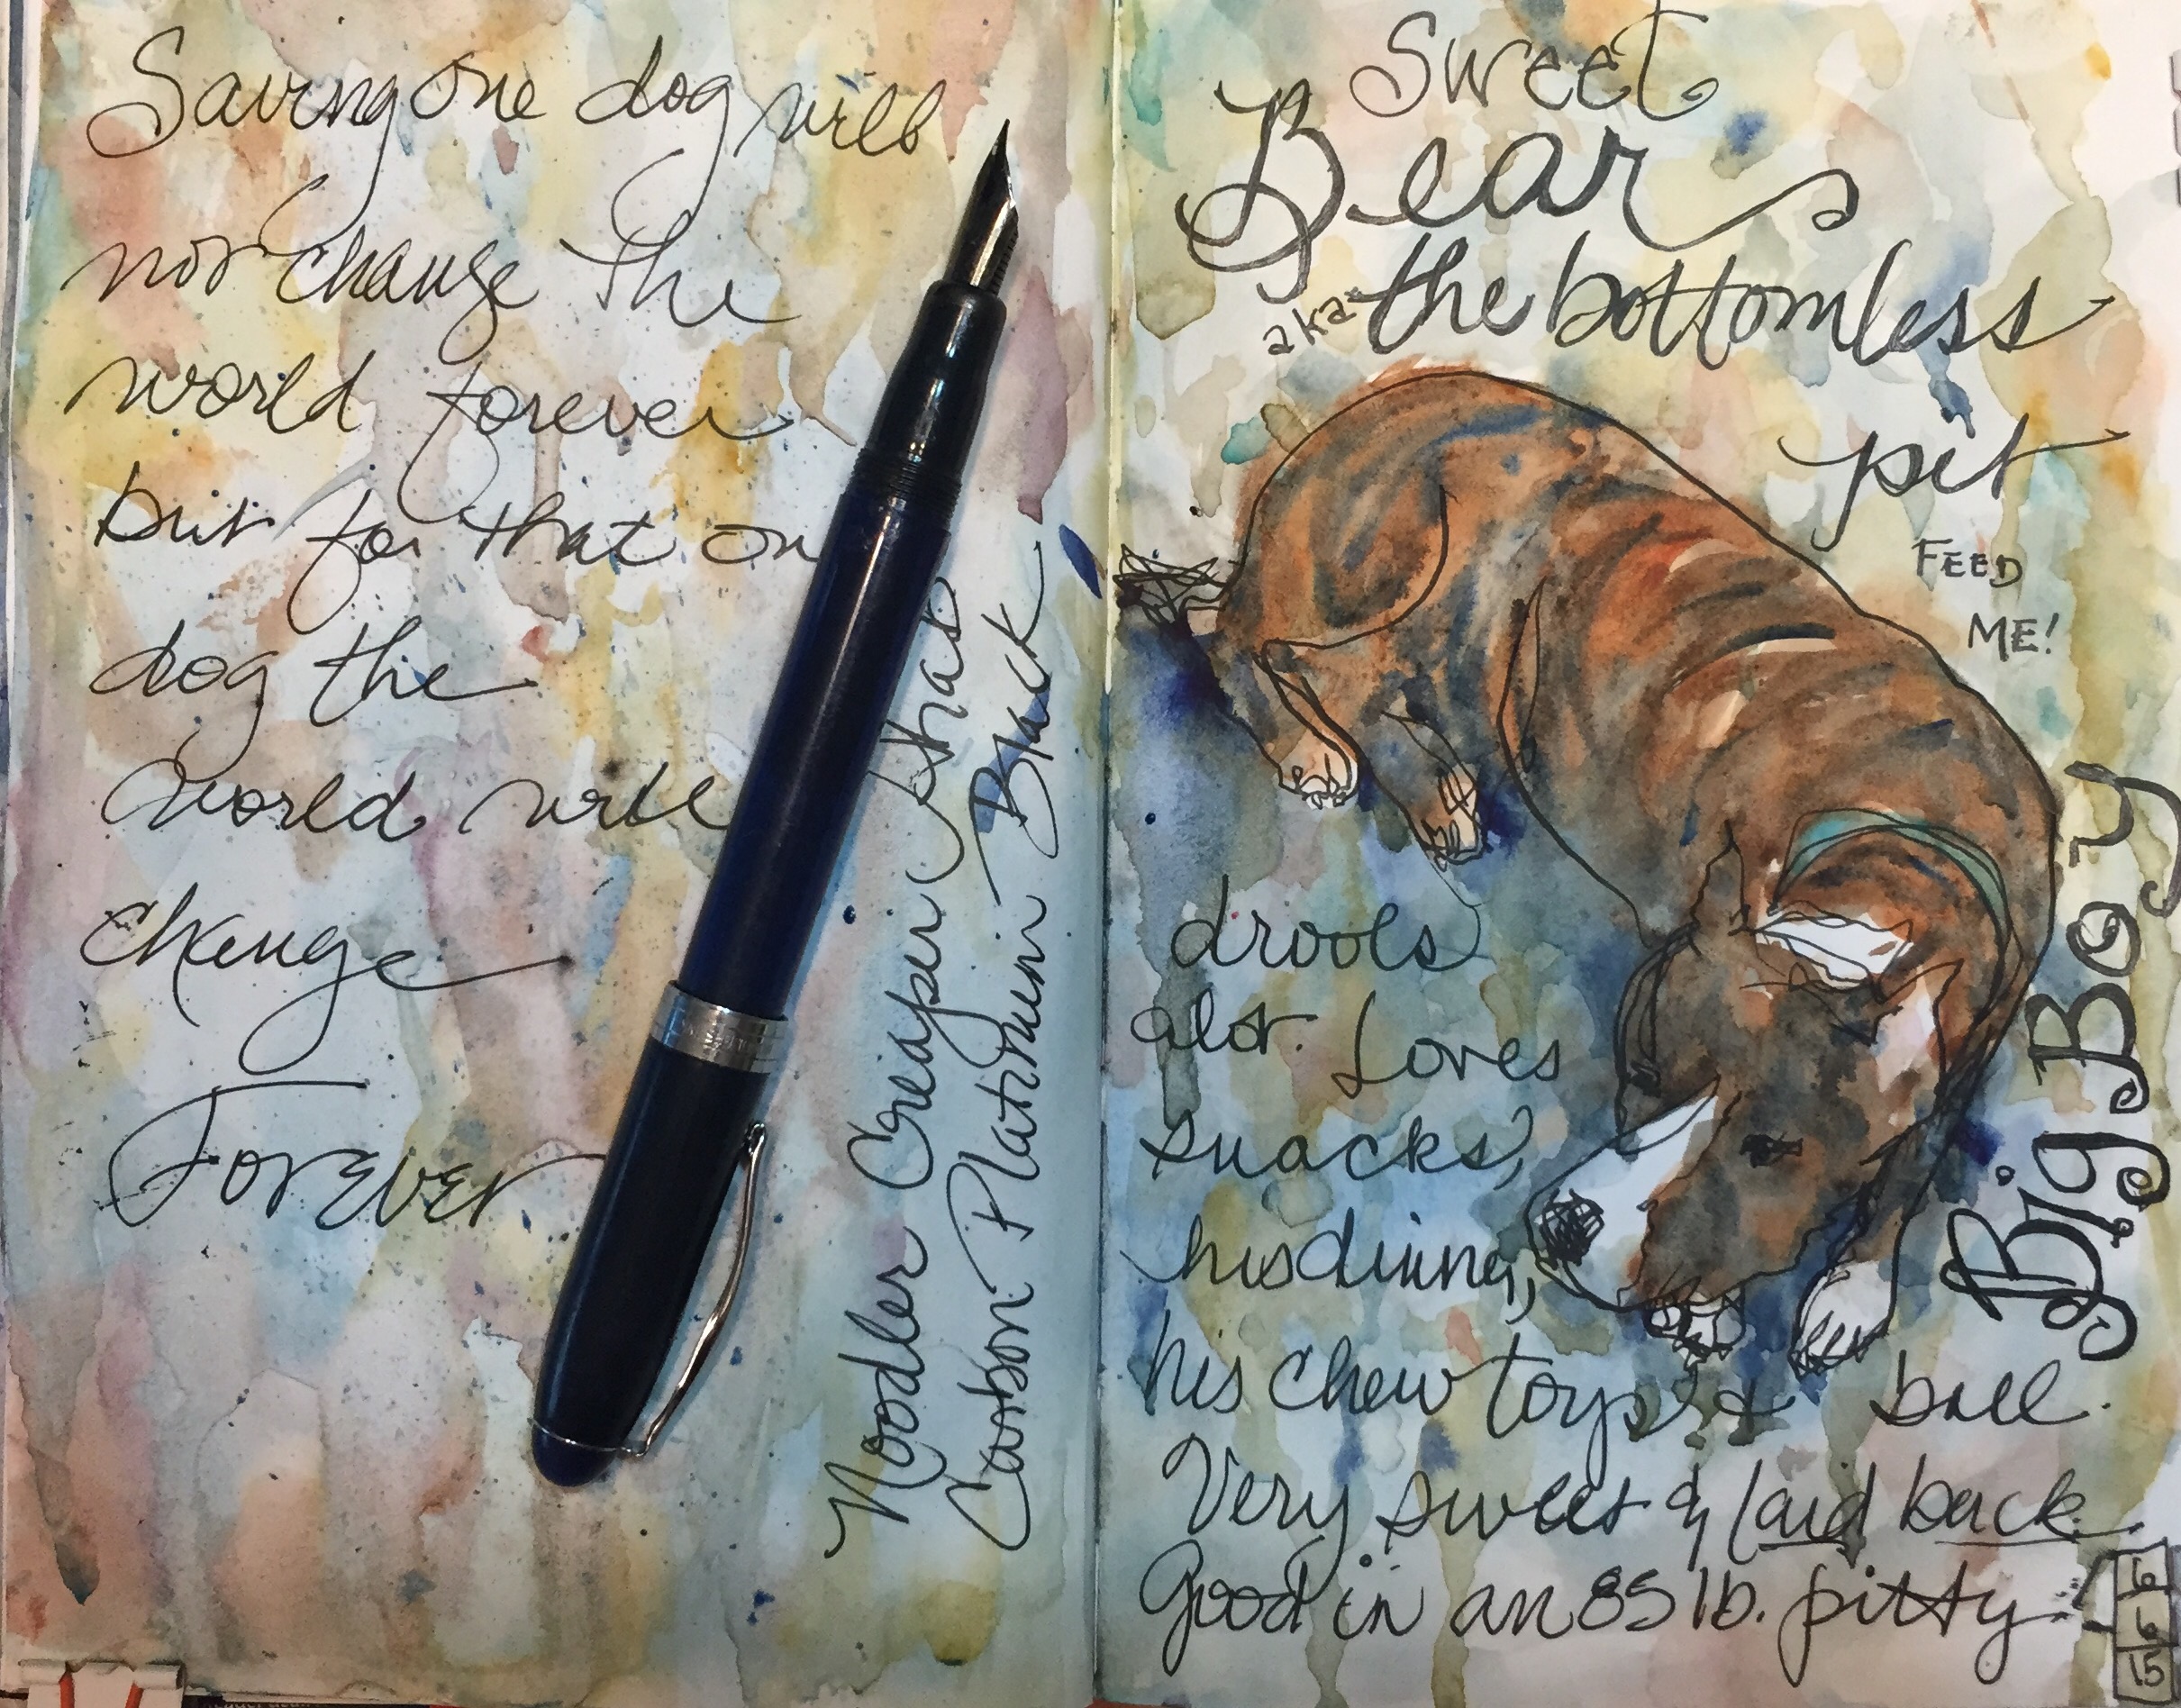 Saving one dog will
not change the
world forever
but for that on
dog the
world will
change
Forever
Nooder Creaper
Carbon Platinum Black
Sweet
Bear
aka the bottomless
pit
FEED
ME!
Big Boy
drools
alot. Loves
snacks,
his dining,
his chew toys & ball.
Very sweet & laid back.
Good in an 85 lb. pitty
6
6
15